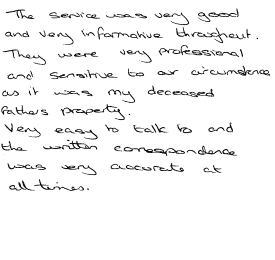 The service was very good
and very informative throughout.
They were very professional
and sensitive to our circumstance
as it was my deceased
fathers property.
Very easy to talk to and
the written correspondence
was very accurate at
all times.